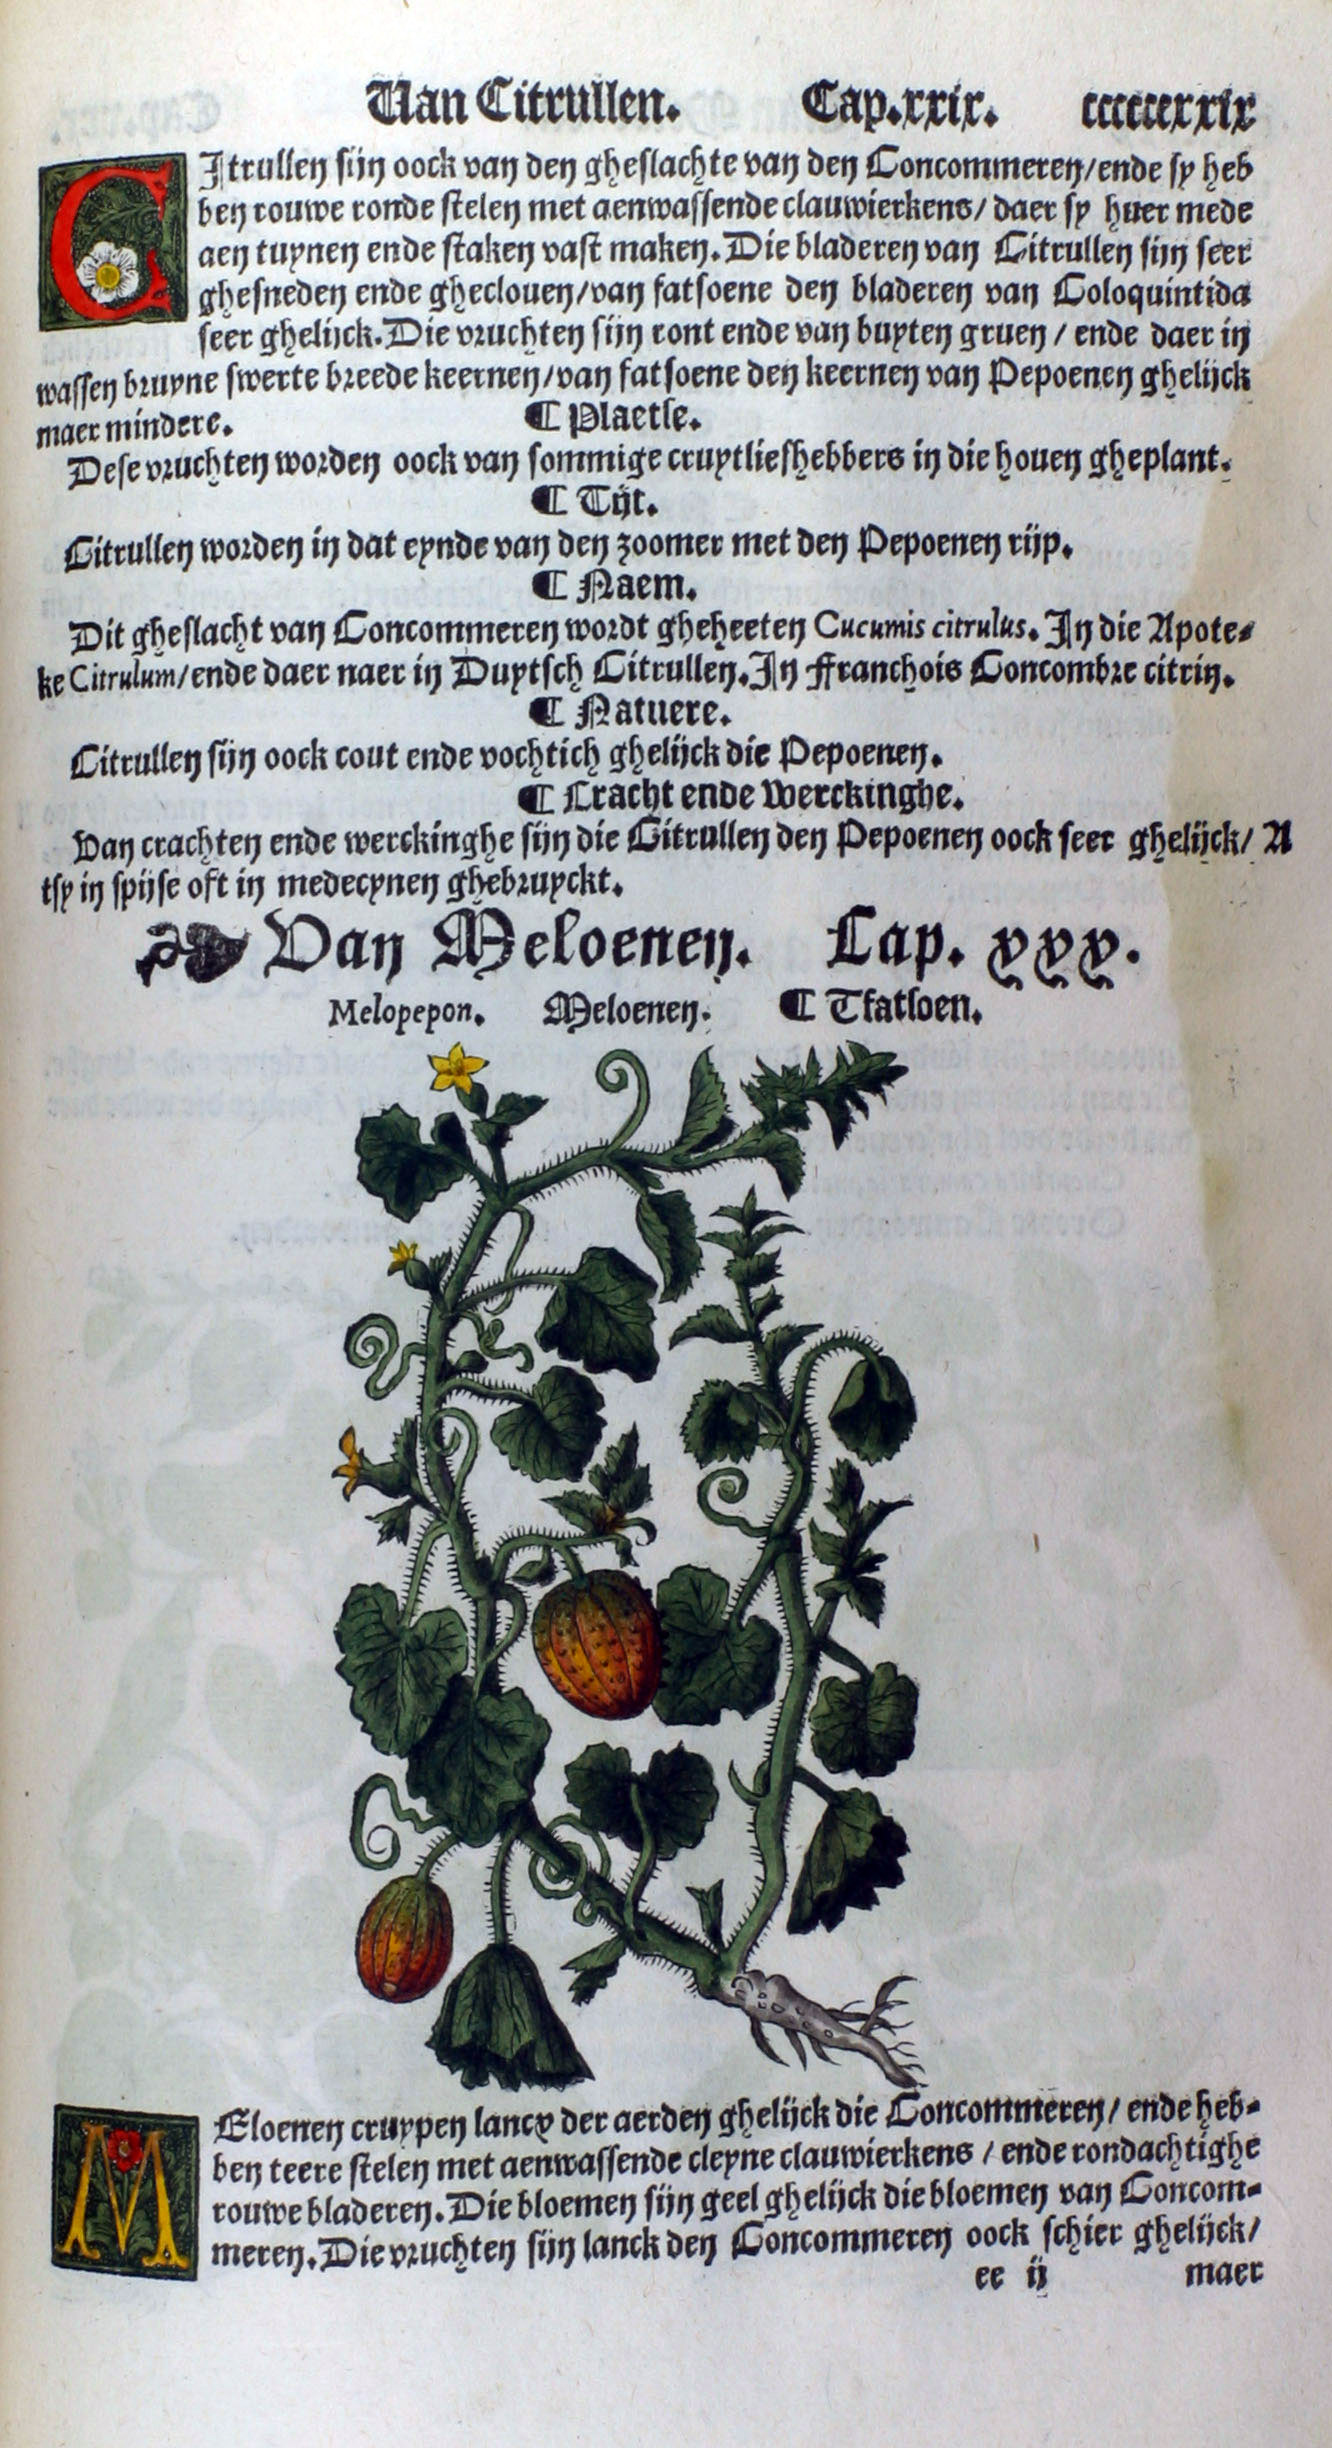 Van Citrullen. Cap.xxix. ccccccxxix
CItrullen sijn oock van den gheslachte van den Concommeren/ende sy heb
ben rouwe ronde stelen met aenwassende clauwierkens/ daer sy huer mede
aen tuynen ende staken vast maken. Die bladeren van Citrullen sijn seer
ghesneden ende ghеclouen/van fatsoene den bladeren van Coloquintida
seer ghelijck. Die vruchten sijn ront ende van buyten gruen / ende daer in
wassen bruyne swerte breede keernen/van fatsoene den keernen van Pepoenen ghelijck
maer mindere. ¶ Plaetse.
Dese vruchten worden oock van sommige cruytliefhebbers in die houen gheplant.
¶ Tijt.
Citrullen worden in dat eynde van den zoomer met den Pepoenen rijp.
¶ Naem.
Dit gheslacht van Concommeren wordt gheheeten Cucumis citrulus. In die Apote-
ke Citrulum/ende daer naer in Duytsch Citrullen. In Franchois Concombre citrin.
¶ Natuere.
Citrullen sijn oock cout ende vochtich ghelijck die Pepoenen.
¶ Cracht ende Werckinghe.
Van crachten ende werckinghe sijn die Citrullen den Pepoenen oock seer ghelijck/ A
tsy in spijse oft in medecynen ghebruyckt.
Van Meloenen. Cap. xxx.
Melopepon. Meloenen. ¶ Tfatsoen.
MEloenen cruypen lancx der aerden ghelijck die Concommeren/ ende heb-
ben teere stelen met aenwassende cleyne clauwierkens / ende rondachtighe
rouwe bladeren. Die bloemen sijn geel ghelijck die bloemen van Concom-
meren. Die vruchten sijn lanck den Concommeren oock schier ghelijck/
ee ij maer